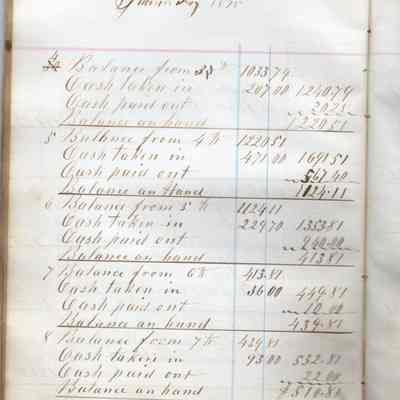 4 Balance from 3d 1033.79
Cash taken in 207.00 1240.79
Cash paid out 20.28
Balance on hand 1220.51
5 Ballance from 4th 1220.51
Cash taken in 471.00 1691.51
Cash paid out 567.40
Balance on Hand 1124.11
6 Balance from 5th 1124.11
Cash taken in 229.70 1353.81
Cash paid out 940.00
Balance on hand 413.81
7 Balance from 6th 413.81
Cash taken in 36.00 449.81
Cash paid out 10.00
Balance on hand 439.81
8 Balance from 7th 439.81
Cash taken in 93.00 532.81
Cash paid out 22.00
Balance on hand 510.81